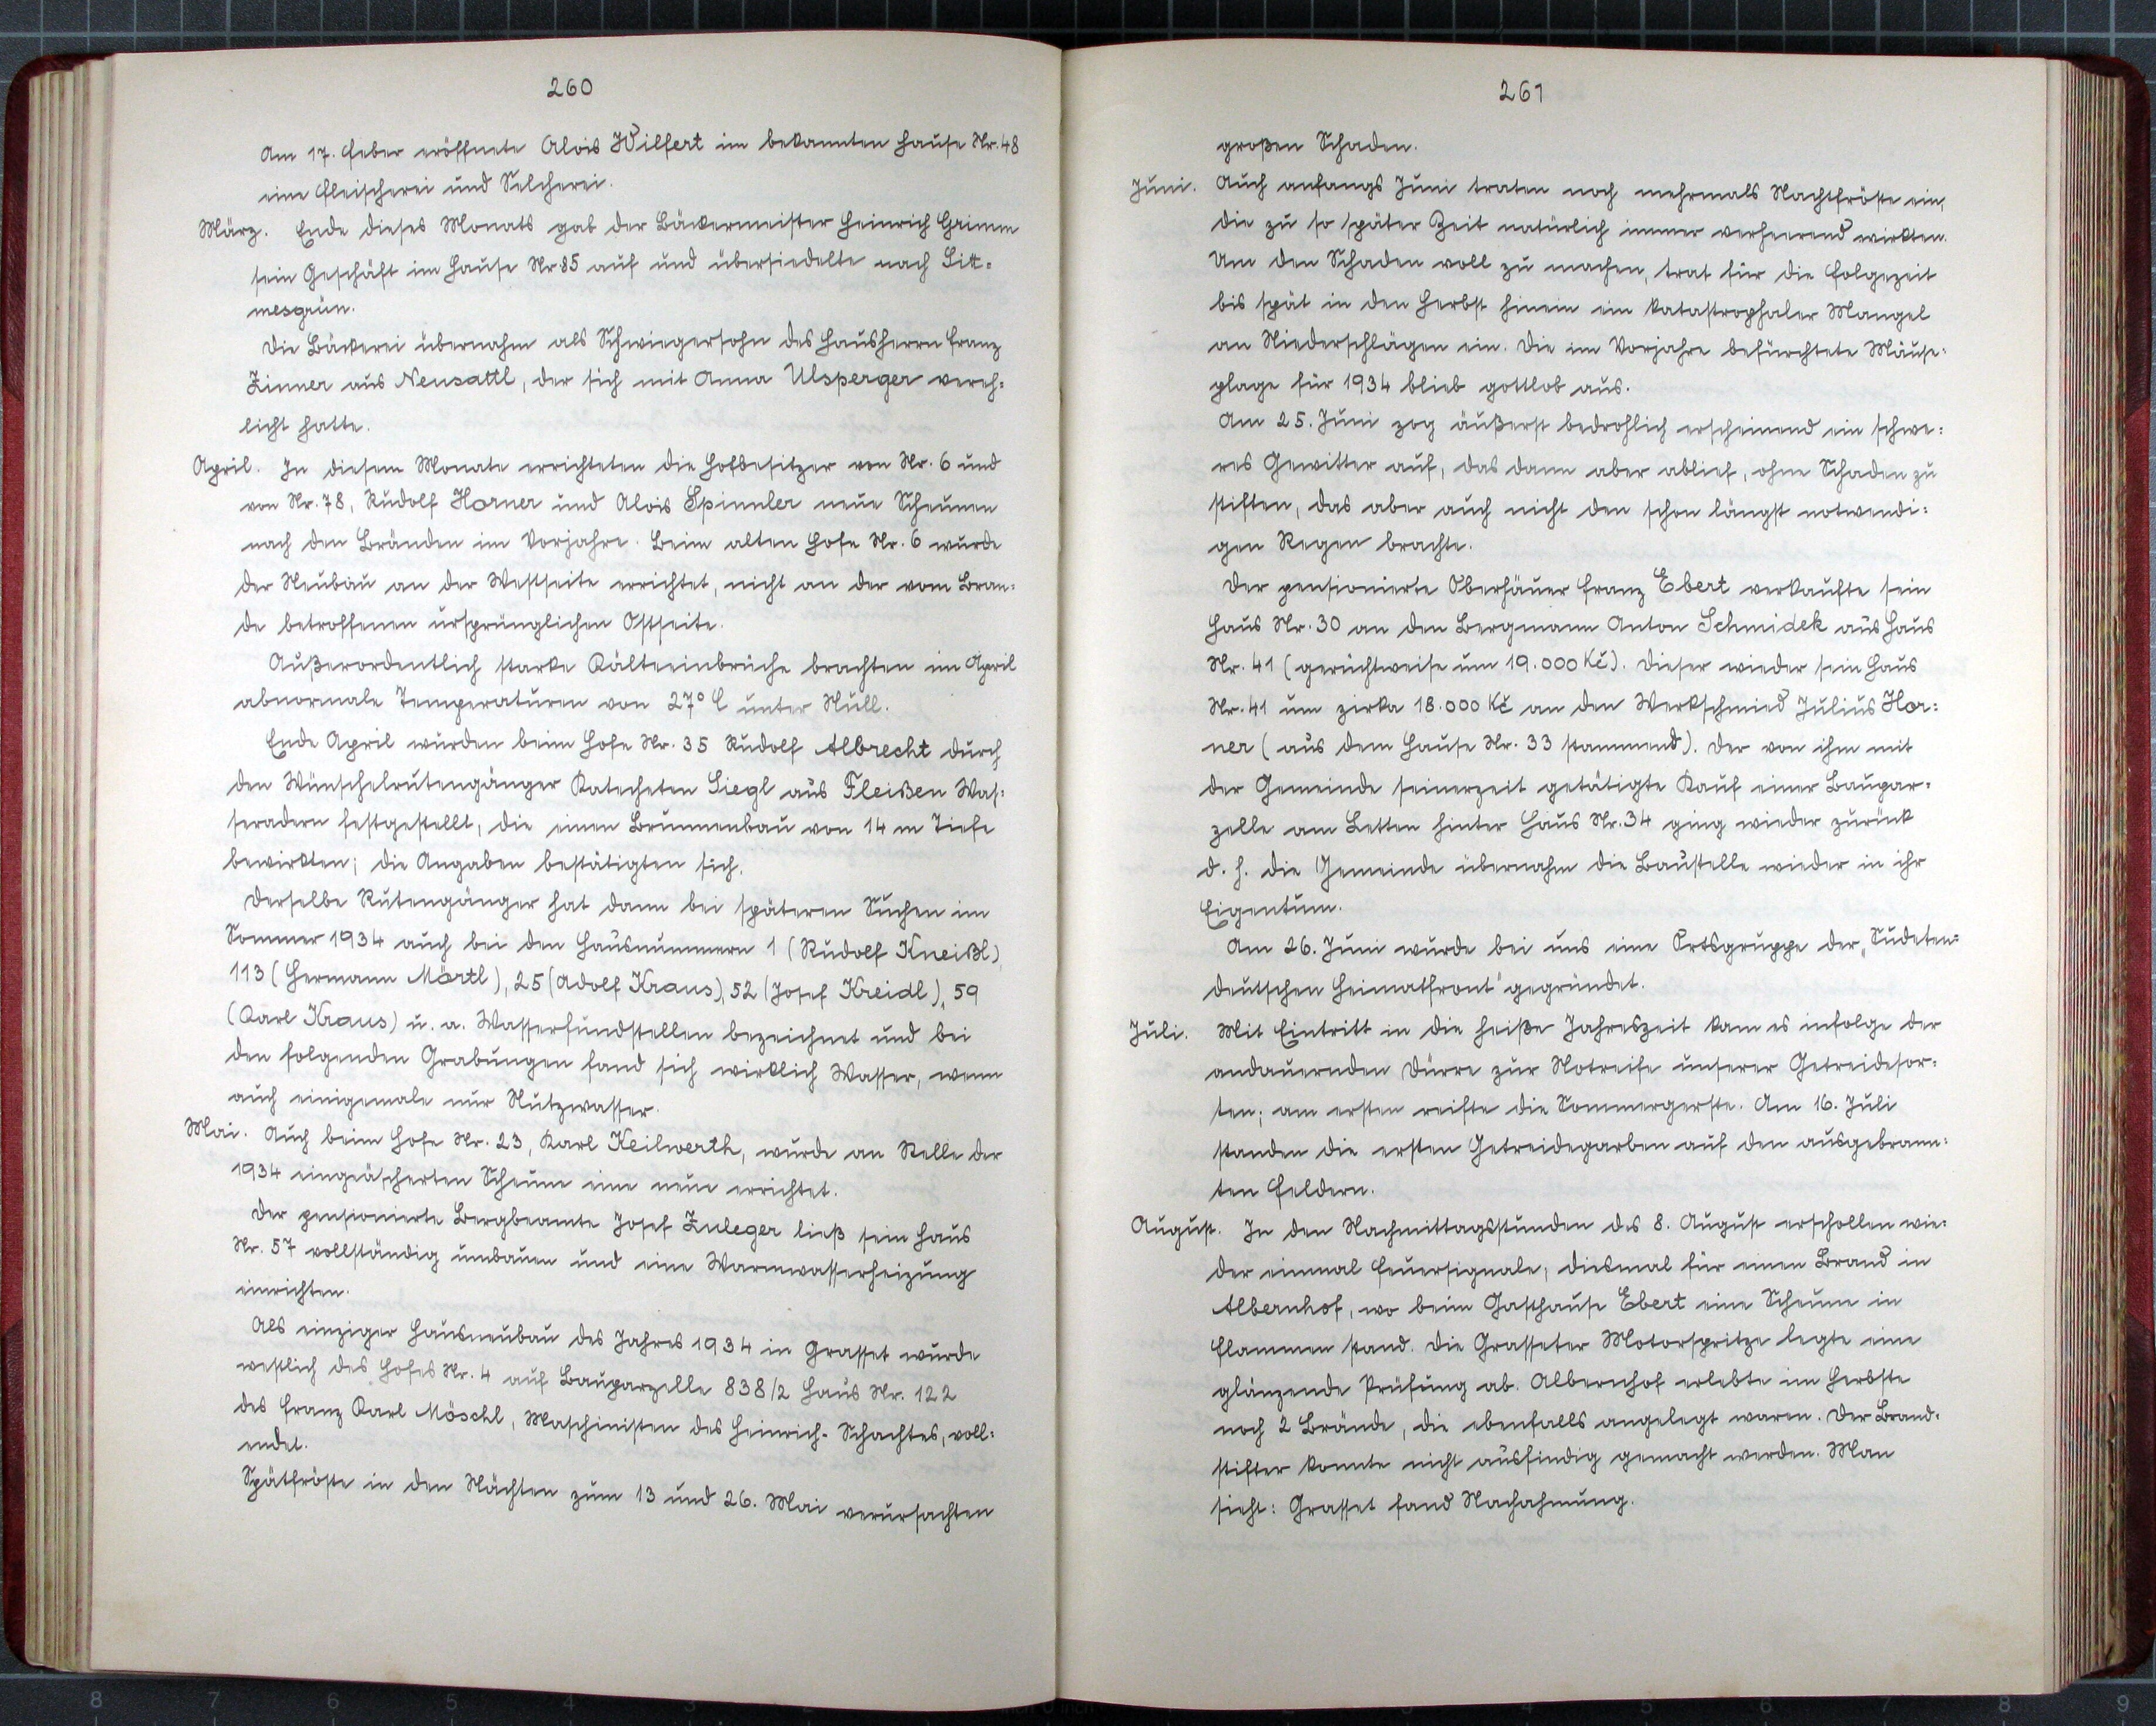 260
Am 17. Feber eröffnete Alois Wilfert im bekannten Hause Nr. 48
eine Fleischerei und Selcherei.
März. Ende dieses Monats gab der Bäckermeister Heinrich Grimm
sein Geschäft im Hause Nr. 85 auf und übersiedelte nach Litt=
mesgrün.
Die Bäckerei übernahm als Schwiegersohn des Hausherrn Franz
Zinner aus Neusattl, der sich mit Anna Ulsperger vereh=
licht hatte.
April. In diesem Monate errichteten die Hofbesitzer von Nr. 6 und
von Nr. 78, Rudolf Horner und Alois Spinnler neue Scheunen
nach den Bränden im Vorjahre. Beim alten Hofe Nr. 6 wurde
der Neubau an der Westseite errichtet, nicht an der vom Bran=
de betroffenen ursprünglichen Ostseite.
Außerordentlich starke Kälteeinbrüche brachten im April
abnormale Temperaturen von 27° C unter Null.
Ende April wurden beim Hofe Nr. 35 Rudolf Albrecht durch
den Wünschelrutengänger Katecheten Siegl aus Fleißen Was=
seradern festgestellt, die einen Brunnenbau von 14 m Tiefe
bewirkten; die Angaben bestätigten sich.
Derselbe Rutengänger hat dann bei späteren Suchen im
Sommer 1934 auch bei den Hausnummern 1 (Rudolf Kneißl),
113 (Hermann Mörtl), 25 (Adolf Kraus), 52 (Josef Kreidl), 59
(Karl Kraus) u. a. Wasserfundstellen bezeichnet und bei
den folgenden Grabungen fand sich wirklich Wasser, wenn
auch einigemale nur Nutzwasser.
Mai. Auch beim Hofe Nr. 23, Karl Keilwerth, wurde an Stelle der
1934 eingeäscherten Scheune eine neue errichtet.
Der pensionierte Bergbeamte Josef Zuleger ließ sein Haus
Nr. 57 vollständig umbauen und eine Warmwasserheizung
einrichten.
Als einziger Hausneubau des Jahres 1934 in Grasset wurde
westlich des Hofes Nr. 4 auf Bauparzelle 838/2 Haus Nr. 122
des Franz Karl Möschl, Maschinisten des Heinrich-Schachtes, voll=
endet.
Spätfröste in den Nächten zum 13 und 26. Mai verursachten
261
großen Schaden.
Juni. Auch anfangs Juni traten noch mehrmals Nachtfröste ein,
die zu so später Zeit natürlich immer verheerend wirkten.
Um den Schaden voll zu machen, trat für die Folgezeit
bis spät in den Herbst hinein ein katastrophaler Mangel
an Niederschlägen ein. Die im Vorjahre befürchtete Mäuse=
plage für 1934 blieb gottlob aus.
Am 25. Juni zog äußerst bedrohlich erscheinend ein schwe=
res Gewitter auf, das dann aber ablief, ohne Schaden zu
stiften, das aber auch nicht den schon längst notwendi=
gen Regen brachte.
Der pensionierte Oberhäuer Franz Ebert verkaufte sein
Haus Nr. 30 an den Bergmann Anton Schmidek aus Haus
Nr. 41 (gerüchtweise um 19.000 Kč). Dieser wieder sein Haus
Nr. 41 um zirka 18.000 Kč an den Werkschmied Julius Hor=
ner (aus dem Hause Nr. 33 stammend). Der von ihm mit
der Gemeinde seinerzeit getätigte Kauf einer Baupar=
zelle am Letten hinter Haus Nr. 34 ging wieder zurück
d. h. die Gemeinde übernahm die Baustelle wieder in ihr
Eigentum.
Am 26. Juni wurde bei uns eine Ortsgruppe der „Sudeten=
deutschen Heimatfront" gegründet.
Juli. Mit Eintritt in die heiße Jahreszeit kam es infolge der
andauernden Dürre zur Notreife unserer Getreidesor=
ten; am ersten reifte die Sommergerste. Am 16. Juli
standen die ersten Getreidegarben auf den ausgebrann=
ten Feldern.
August. In den Nachmittagsstunden des 8. August erschollen wie=
der einmal Feuersignale, diesmal für einen Brand in
Albernhof, wo beim Gasthause Ebert eine Scheune in
Flammen stand. Die Grasseter Motorspritze legte eine
glänzende Prüfung ab. Albernhof erlebte im Herbste
noch 2 Brände, die ebenfalls angelegt waren. Der Brand=
stifter konnte nicht ausfindig gemacht werden. Man
sieht: Grasset fand Nachahmung.
8 7 6 5 4 3 4 5 6 7 8 9